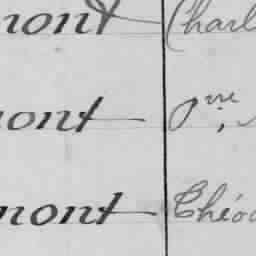 mont Charl
mont Pre,
mont Théod